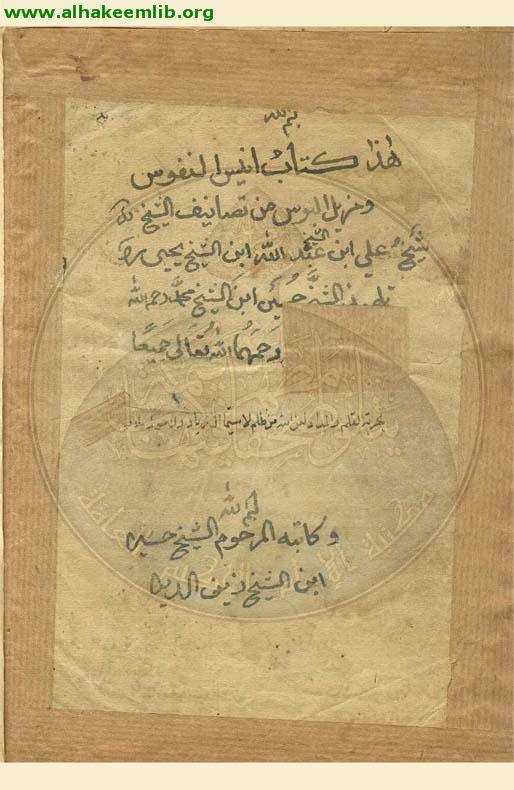 www.alhakeemlib.org
بسم الله
هذا كتاب انيس النفوس
ومزيل البوس من تصانيف الشيخ
شيخ علي ابن الشيخ عبد الله ابن الشيخ يحيى
الشيخ حسين ابن الشيخ محمد رحمه الله
رحمهما الله تعالى جميعا
من ظلم لا سيما ال زياد
بسم الله
وكاتبه المرحوم الشيخ حسين
ابن الشيخ زين الدين